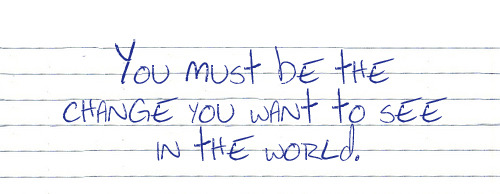 You must be the
change you want to see
in the world.